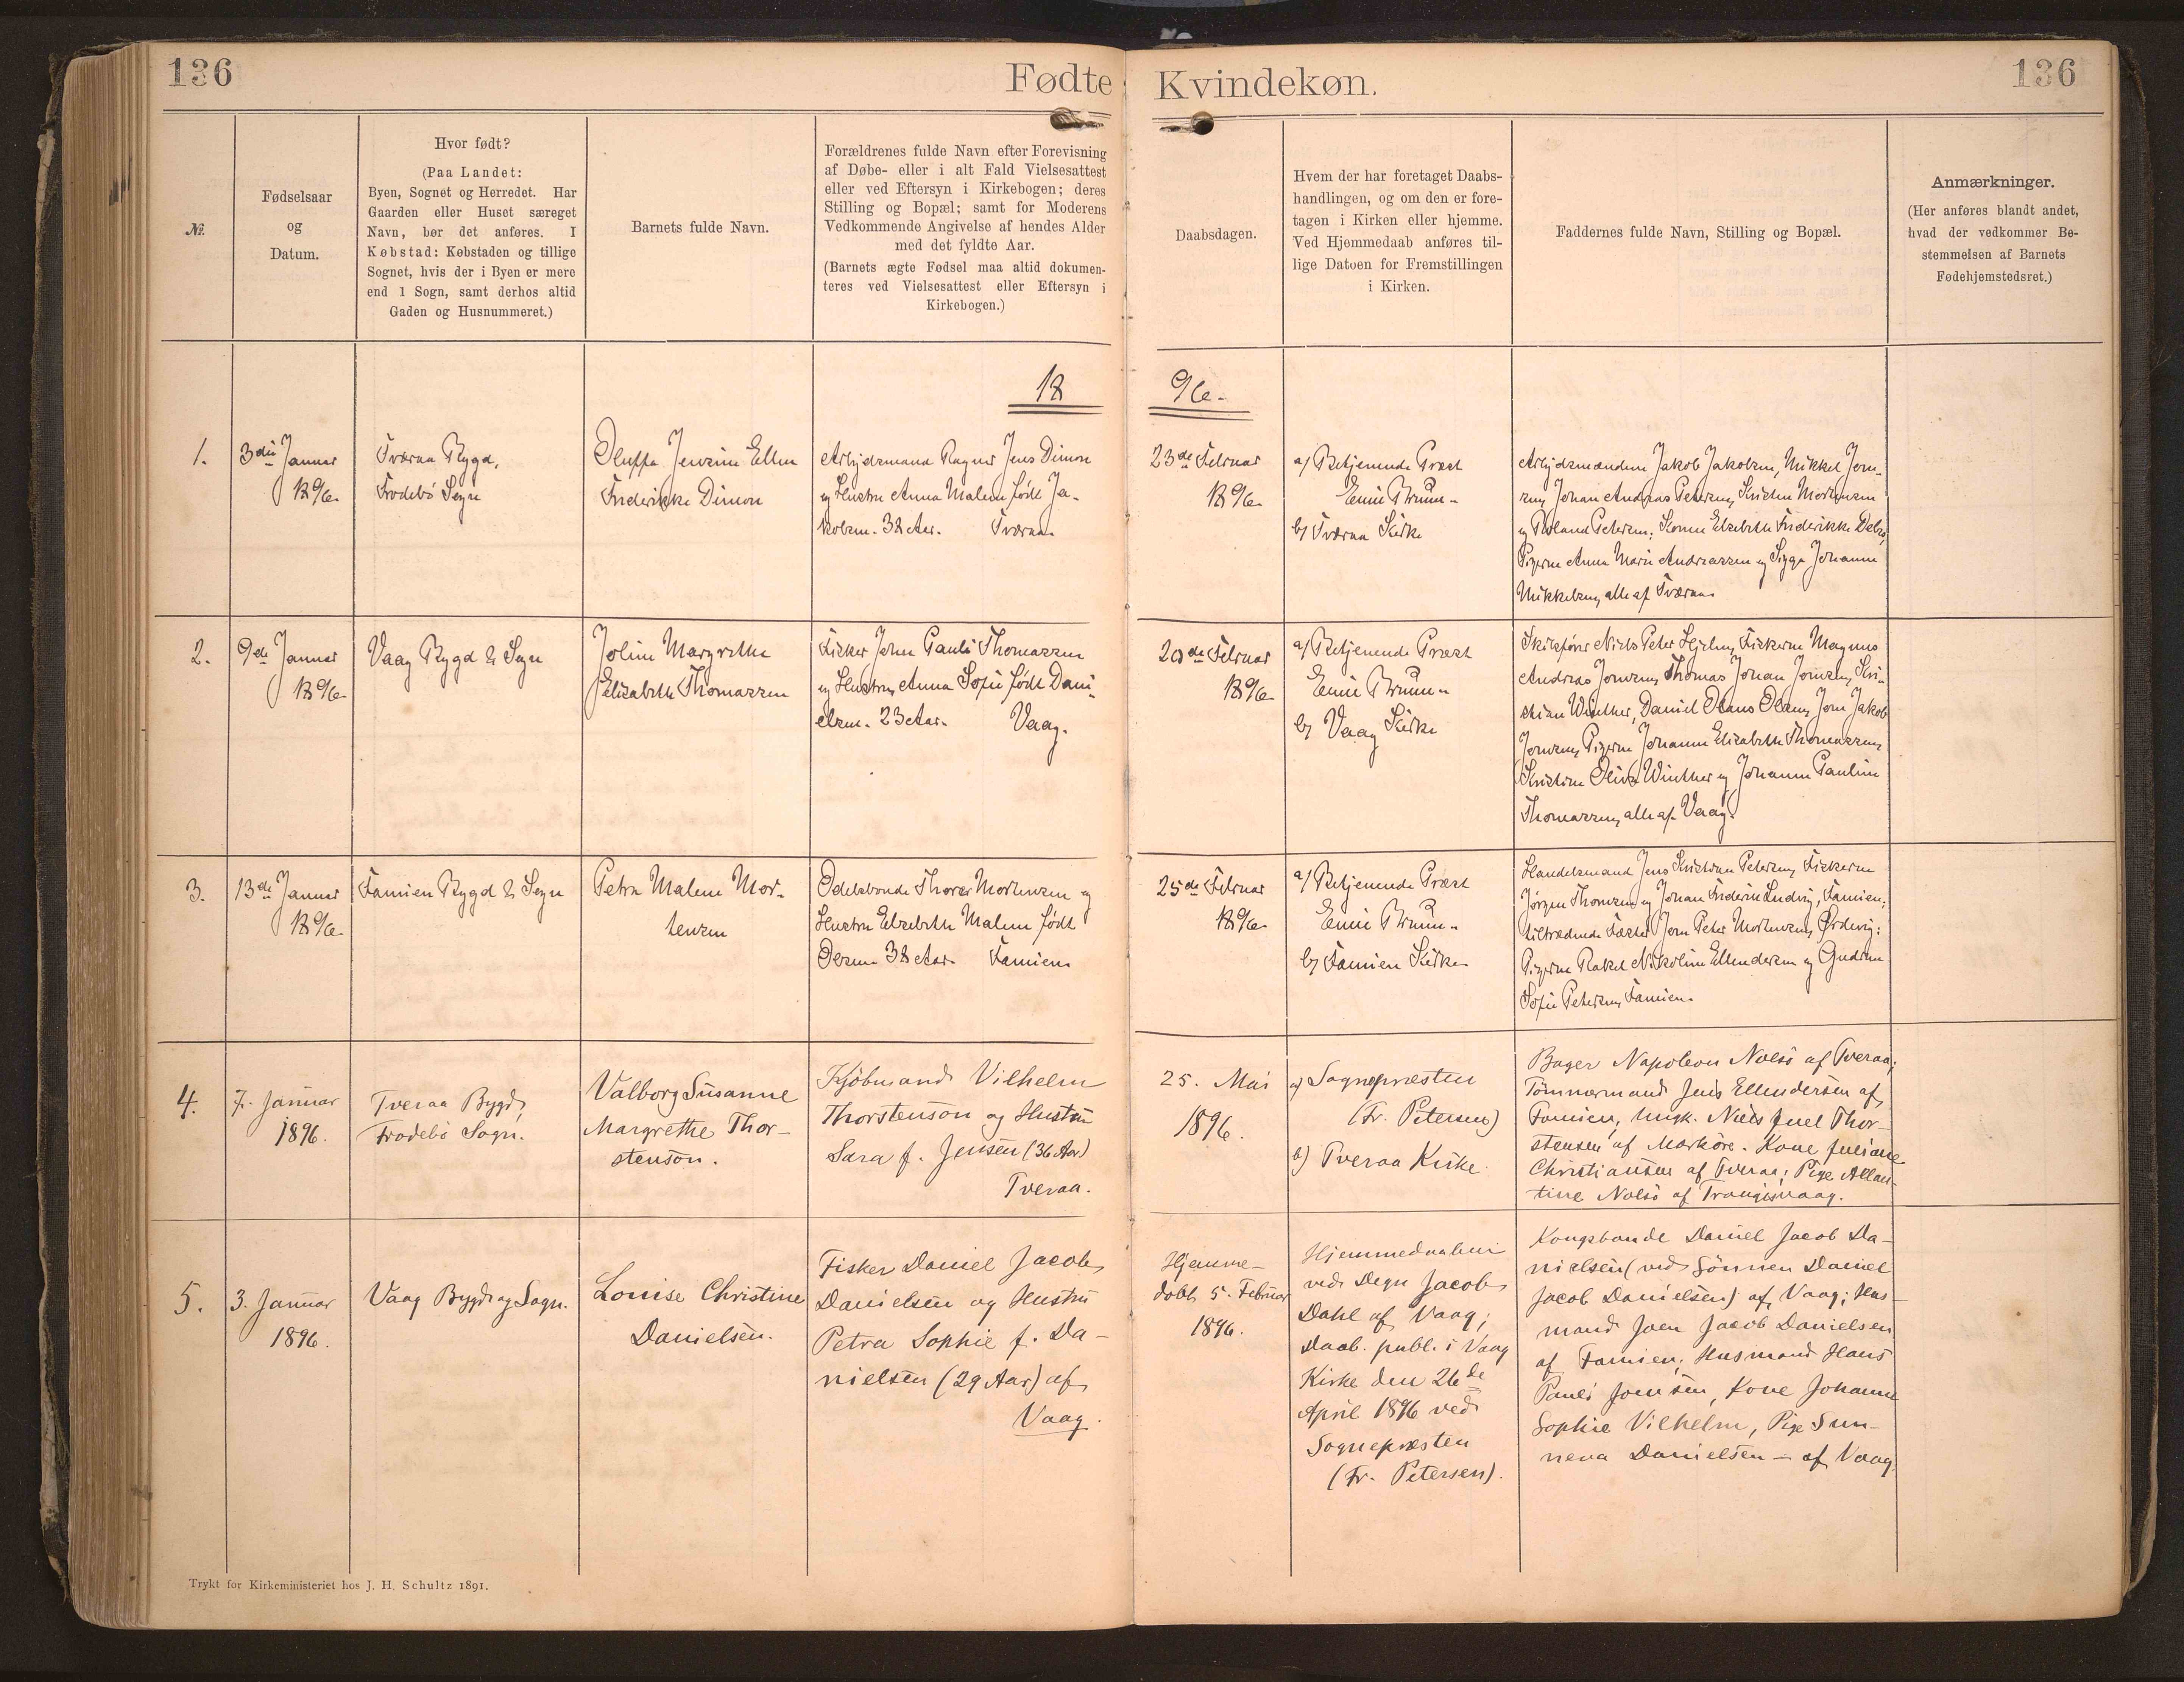 136
Fødte
Kvindekøn.
136
№.
Fødselsaar
og
Datum.
Hvor født?
(Paa Landet:
Byen, Sognet og Herredet. Har
Gaarden eller Huset særeget
Navn, bør det anføres. I
Købstad: Købstaden og tillige
Sognet, hvis der i Byen er mere
end 1 Sogn, samt derhos altid
Gaden og Husnummeret.)
Barnets fulde Navn.
Forældrenes fulde Navn efter Forevisning
af Døbe- eller i alt Fald Vielsesattest
eller ved Eftersyn i Kirkebogen; deres
Stilling og Bopæl; samt for Moderens
Vedkommende Angivelse af hendes Alder
med det fyldte Aar.
(Barnets ægte Fødsel maa altid dokumen-
teres ved Vielsesattest eller Eftersyn i
Kirkebogen.)
Daabsdagen.
Hvem der har foretaget Daabs-
handlingen, og om den er fore-
tagen i Kirken eller hjemme.
Ved Hjemmedaab anføres til-
lige Datoen for Fremstillingen
i Kirken.
Faddernes fulde Navn, Stilling og Bopæl.
Anmærkninger.
(Her anføres blandt andet,
hvad der vedkommer Be-
stemmelsen af Barnets
Fødehjemstedsret.)
18
96.
1.
3die Januar
1896.
Tværaa Bygd,
Frodebö Sogn
Jensine Ellen
Frederikke Dimon
Arbejdsmand Ragner Jens Dimon
og Hustru Anna Malene født Ja-
kobsen. 38 Aar. Tværaa.
23de Februar
1896.
a) Betjenende Præst
Emil Bruun.
b) Tværaa Kirke
Arbejdsmændene Jakob Jakobsen, Mikkel Joen-
sen, Johan Andreas Petersen, Kristen Mortensen
og Roland Petersen; Konen Elsebeth Frederikke Debes,
Pigerne Anna Marie Andreassen og Sigga Johanne
Mikkelsen, alle af Tværaa.
2.
9de Januar
1896.
Vaag Bygd & Sogn
Joline Margrethe
Elisabeth Thomassen
Fisker John Pauli Thomassen
og Hustru Anna Sofie født Dani-
elsen. 23 Aar. Vaag.
20de Februar
1896.
a) Betjenende Præst
Emil Bruun.
b) Vaag Kirke
Skibsfører Niels Peter Hjelm, Fiskerne Magnus
Andreas Joensen, Thomas Johan Joensen, Kri-
stian Winther, Daniel Olaus Olsen, Joen Jakob
Joensen, Pigerne Johanne Elisabeth Thomassen,
Kristine Oliva Winther og Johanne Pauline
Thomassen, alle af Vaag.
3.
13de Januar
1896.
Famien Bygd & Sogn
Petra Malene Mor-
tensen
Odelsbonde Thorer Mortensen og
Hustru Elsebeth Malene født
Olsen. 38 Aar. Famien.
25de Februar
1896.
a) Betjenende Præst
Emil Bruun.
b) Famien Kirke
Handelsmand Jens Kristian Petersen, Fiskerne
Jørgen Thomsen og Johan Frederik Ludvig, Famien;
tiltrædende Fæster Joen Peter Mortensen, Ørdevig;
Pigerne Rakel Nikoline Ellendersen og Gudrun
Sofie Petersen, Famien.
4.
7. Januar
1896.
Tveraa Bygd,
Frodebö Sogn.
Valborg Susanne
Margrethe Thor-
stenson.
Kjöbmand Vilhelm
Thorstenson og Hustru
Sara f. Jensen (36 Aar)
Tveraa.
25. Mai
1896.
a) Sognepræsten
(Fr. Petersen)
b) Tveraa Kirke.
Bager Napoleon Nolsö af Tveraa;
Tömmermand Jens Ellendersen af
Famien, Ungk. Niels Juel Thor-
stensen af Porkere. Kone Juliane
Christiansen af Tveraa; Pige Atlan-
tine Nolsö af Trangisvaag.
5.
3. Januar
1896.
Vaag Bygd og Sogn.
Louise Christine
Danielsen.
Fisker Daniel Jacob
Danielsen og Hustru
Petra Sophie f. Da-
nielsen (29 Aar) af
Vaag.
Hjemme-
döbt 5. Februar
1896.
Hjemmedaaben
ved Degn Jacob
Dahl af Vaag;
Daab. publ. i Vaag
Kirke den 26de
April 1896 ved
Sognepræsten
(Fr. Petersen).
Kongsbonde Daniel Jacob Da-
nielsen (ved Sönnen Daniel
Jacob Danielsen) af Vaag; Hus-
mand Joen Jacob Danielsen
af Famien; Husmand Hans
Pauli Joensen, Kone Johanne
Sophie Vilhelm, Pige Sun-
neva Danielsen — af Vaag.
Trykt for Kirkeministeriet hos J. H. Schultz 1891.